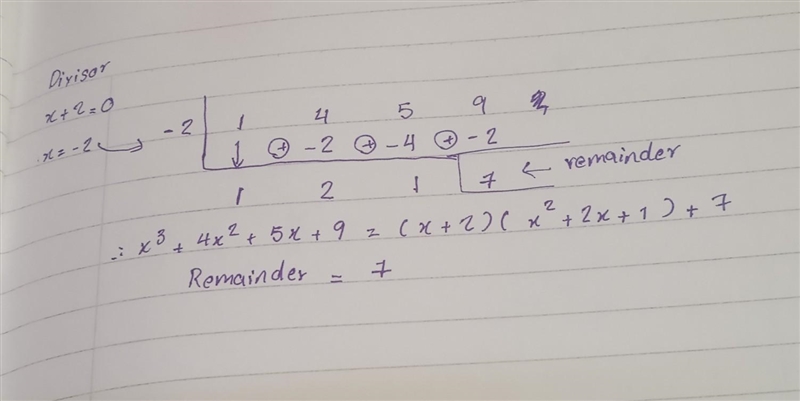 Divisor
x+2=0
x=-2
-2 | 1 4 5 9
↓ ⊕ -2 ⊕ -4 ⊕ -2
1 2 1 | 7 ← remainder
∴ x³ + 4x² + 5x + 9 = (x+2)(x²+2x+1) + 7
Remainder = 7